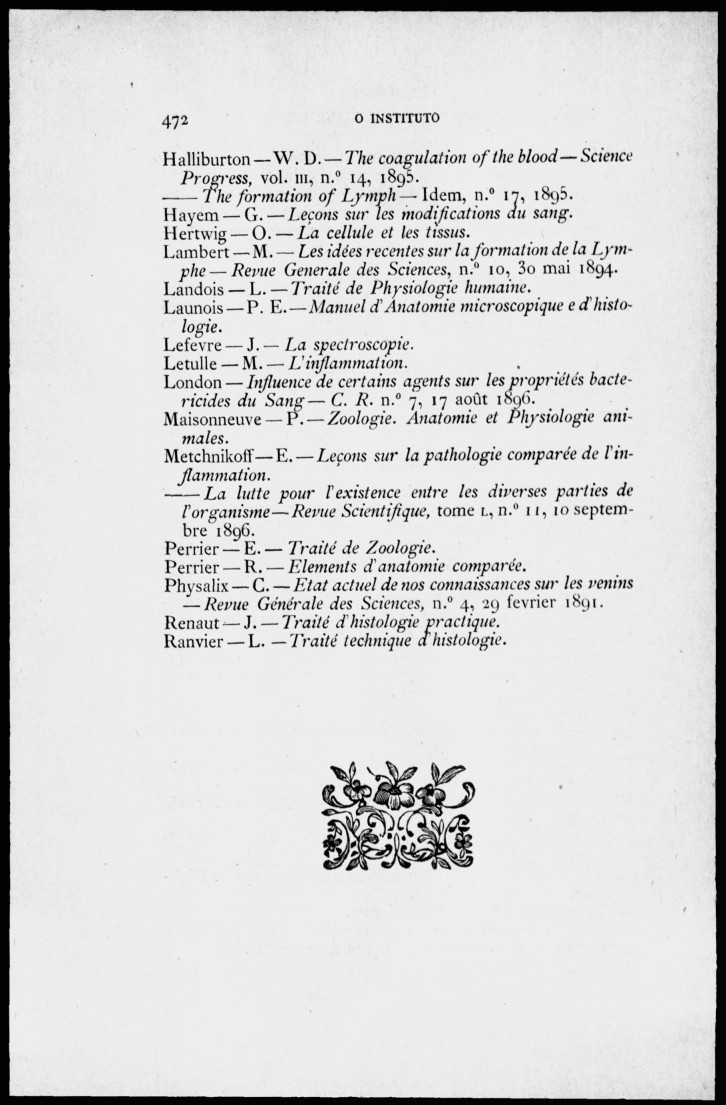 472
O INSTITUTO
Halliburton — W. D. — The coagulation of the blood — Science
Progress, vol. III, n.º 14, 1895.
—— The formation of Lymph — Idem, n.º 17, 1895.
Hayem — G. — Leçons sur les modifications du sang.
Hertwig — O. — La cellule et les tissus.
Lambert — M. — Les idées recentes sur la formation de la Lym-
phe — Revue Generale des Sciences, n.º 10, 30 mai 1894.
Landois — L. — Traité de Physiologie humaine.
Launois — P. E. — Manuel d'Anatomie microscopique e d'histo-
logie.
Lefevre — J. — La spectroscopie.
Letulle — M. — L'inflammation.
London — Influence de certains agents sur les propriétés bacte-
ricides du Sang — C. R. n.º 7, 17 août 1896.
Maisonneuve — P. — Zoologie. Anatomie et Physiologie ani-
males.
Metchnikoff — E. — Leçons sur la pathologie comparée de l'in-
flammation.
—— La lutte pour l'existence entre les diverses parties de
l'organisme — Revue Scientifique, tome L, n.º 11, 10 septem-
bre 1896.
Perrier — E. — Traité de Zoologie.
Perrier — R. — Elements d'anatomie comparée.
Physalix — C. — Etat actuel de nos connaissances sur les venins
— Revue Générale des Sciences, n.º 4, 29 fevrier 1891.
Renaut — J. — Traité d'histologie practique.
Ranvier — L. — Traité technique d'histologie.